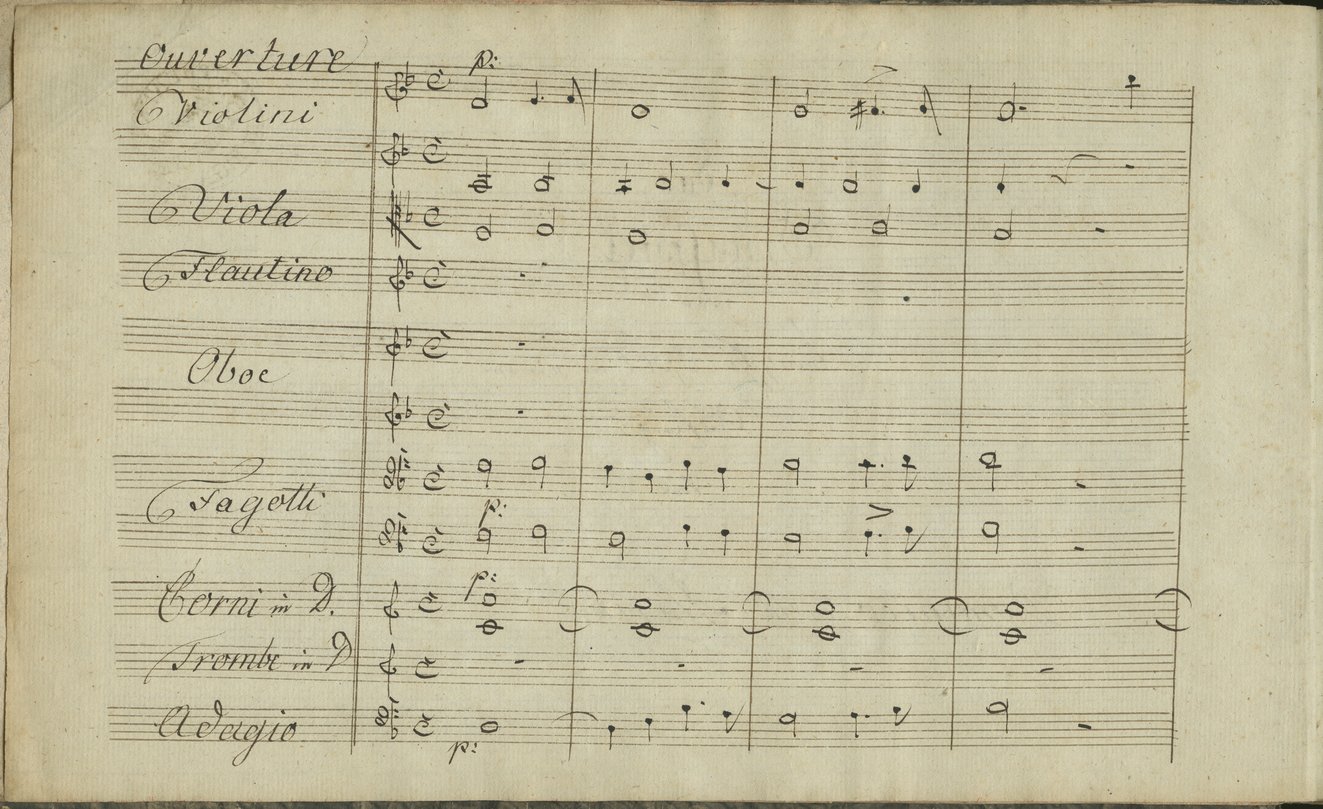 Ouverture
p:
Violini
Viola
Flautino
Oboe
Fagotti
p:
Corni in D.
p:
Trombe in D
Adagio
p: